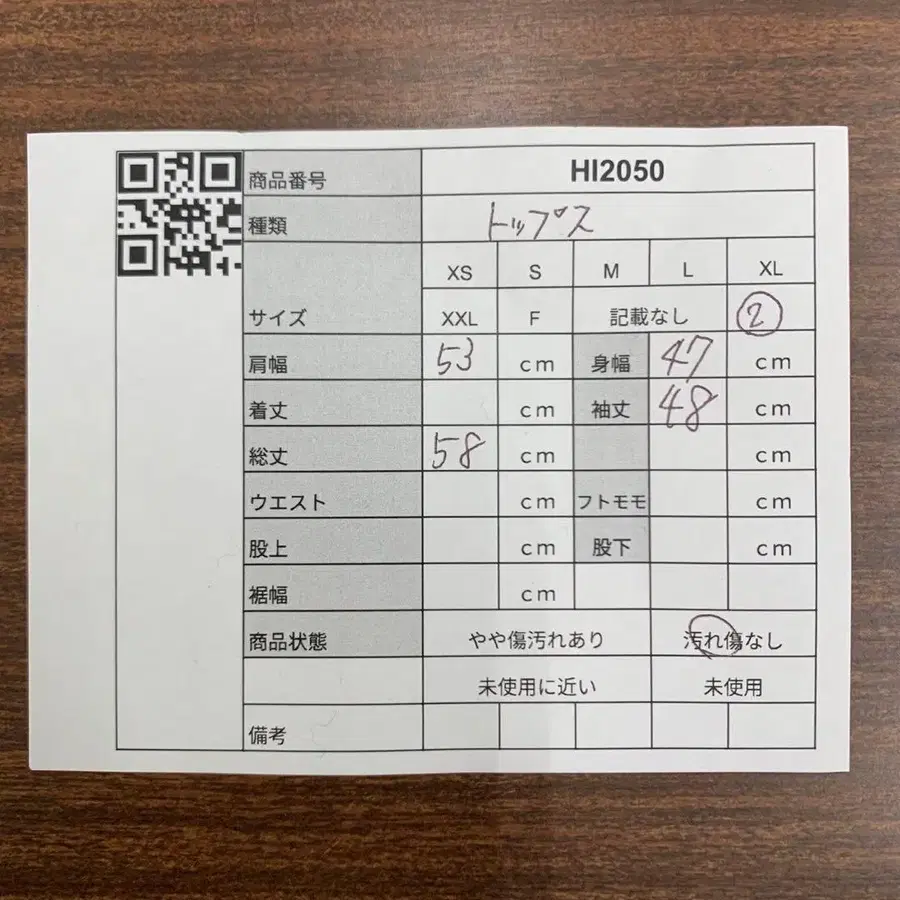 商品番号 HI2050
種類 トップス
XS S M L XL
サイズ XXL F 記載なし 2
肩幅 53 cm 身幅 47 cm
着丈 cm 袖丈 48 cm
総丈 58 cm cm
ウエスト cm フトモモ cm
股上 cm 股下 cm
裾幅 cm
商品状態 やや傷汚れあり 汚れ傷なし
未使用に近い 未使用
備考